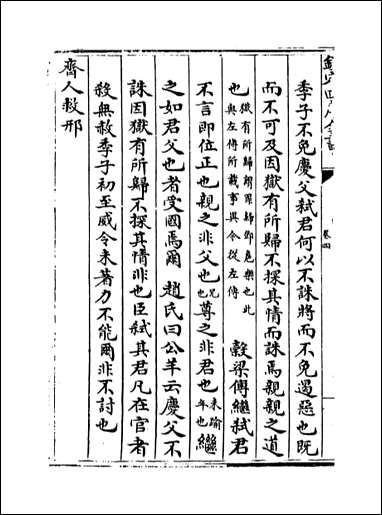 季子不免慶父弑君何以不誅將而不免遏惡也既
而不可及因獄有所歸不探其情而誅焉親親之道
也獄有所歸謂罪歸鄧扈樂也此
與左傳所載事異今從左傳
穀梁傳繼弑君
不言即位正也親之非父也兄也尊之非君也未踰
年也繼
之如君父也者受國焉爾 趙氏曰公羊云慶父不
誅因獄有所歸不探其情非也臣弑其君凡在官者
殺無赦季子初至威令未著力不能爾非不討也
齊人救邢
卷四